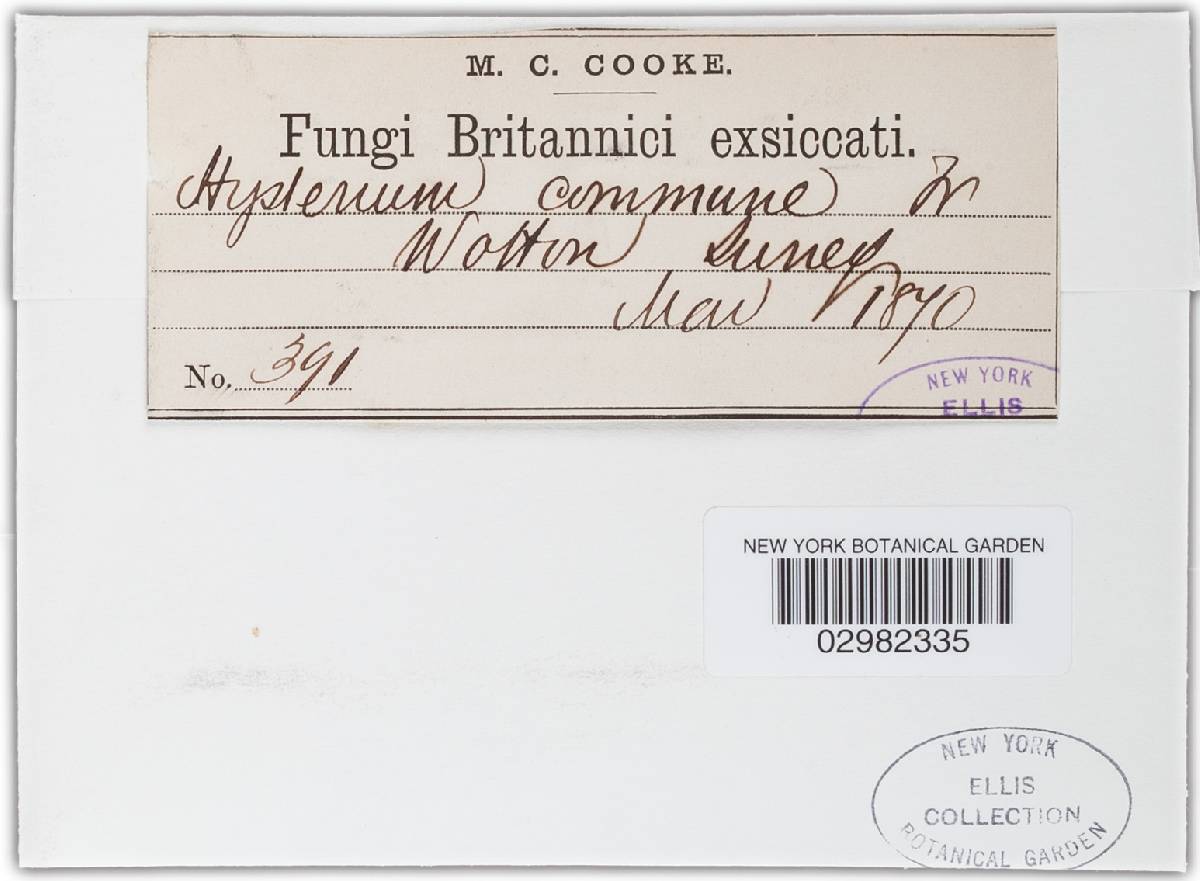 M. C. COOKE.
Fungi Britannici exsiccati.
Hysterium commune Fr
Wotton Surrey
Mar 1870
No. 391
NEW YORK
ELLIS
NEW YORK BOTANICAL GARDEN
02982335
NEW YORK
ELLIS
COLLECTION
BOTANICAL GARDEN